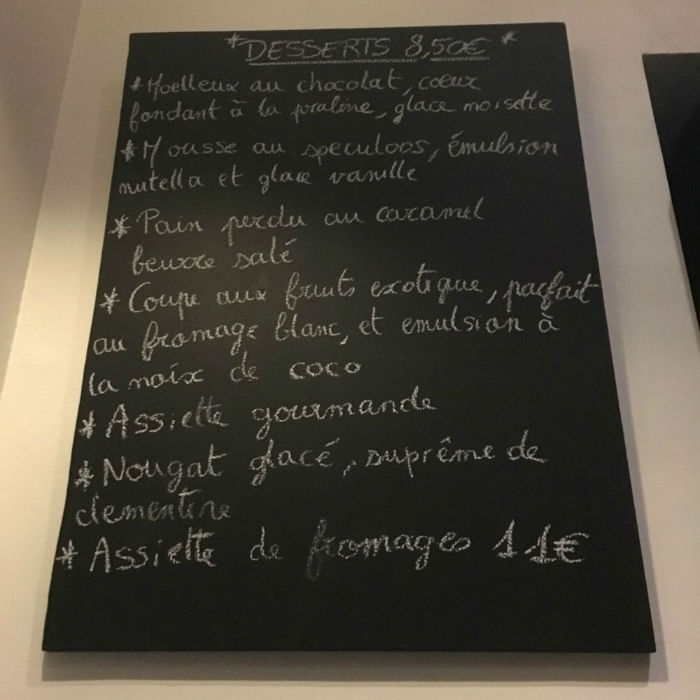 * DESSERTS 8,50€ *
* Moelleux au chocolat, coeur
fondant à la praline, glace noisette
* Mousse au speculoos, émulsion
nutella et glace vanille
* Pain perdu au caramel
beurre salé
* Coupe aux fruits exotique, parfait
au fromage blanc, et emulsion à
la noix de coco
* Assiette gourmande
* Nougat glacé, suprême de
clementine
* Assiette de fromages 11€